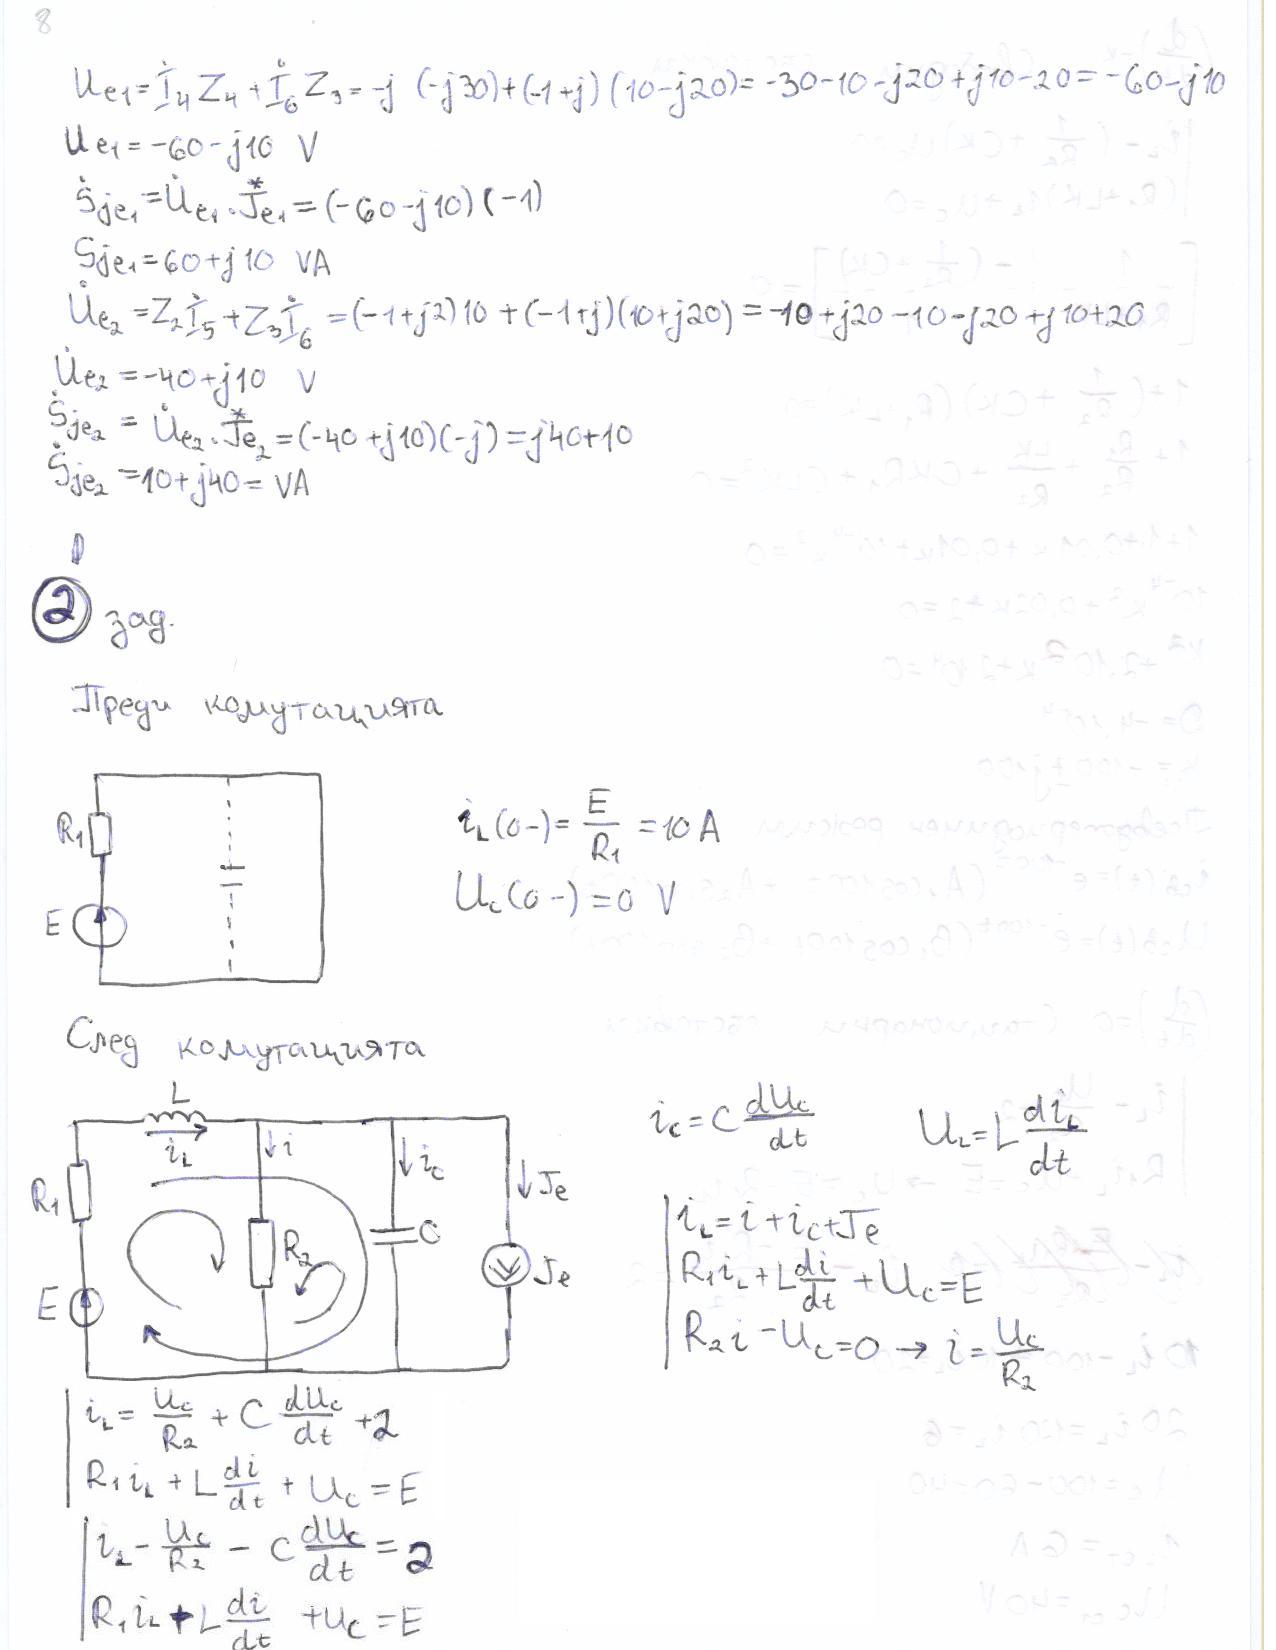 8
U̇e1 = İ4 Z4 + İ6 Z3 = -j (-j30) + (-1+j) (10-j20) = -30-10-j20+j10-20 = -60-j10
U̇e1 = -60-j10 V
Ṡje1 = U̇e1 . J*e1 = (-60-j10) (-1)
Ṡje1 = 60+j10 VA
U̇e2 = Z2 İ5 + Z3 İ6 = (-1+j2) 10 + (-1+j) (10+j20) = -10+j20-10-j20+j10+20
U̇e2 = -40+j10 V
Ṡje2 = U̇e2 . J*e2 = (-40+j10) (-j) = j40+10
Ṡje2 = 10+j40 = VA
2 зад.
Преди комутацията
R1
E
iL(0-) = E/R1 = 10 A
Uc(0-) = 0 V
След комутацията
L
iL
i
ic
Je
R1
R2
C
Je
E
ic = C dUc/dt UL = L diL/dt
iL = i + ic + Je
R1 iL + L di/dt + Uc = E
R2 i - Uc = 0 → i = Uc/R2
iL = Uc/R2 + C dUc/dt + 2
R1 iL + L di/dt + Uc = E
iL - Uc/R2 - C dUc/dt = 2
R1 iL + L di/dt + Uc = E